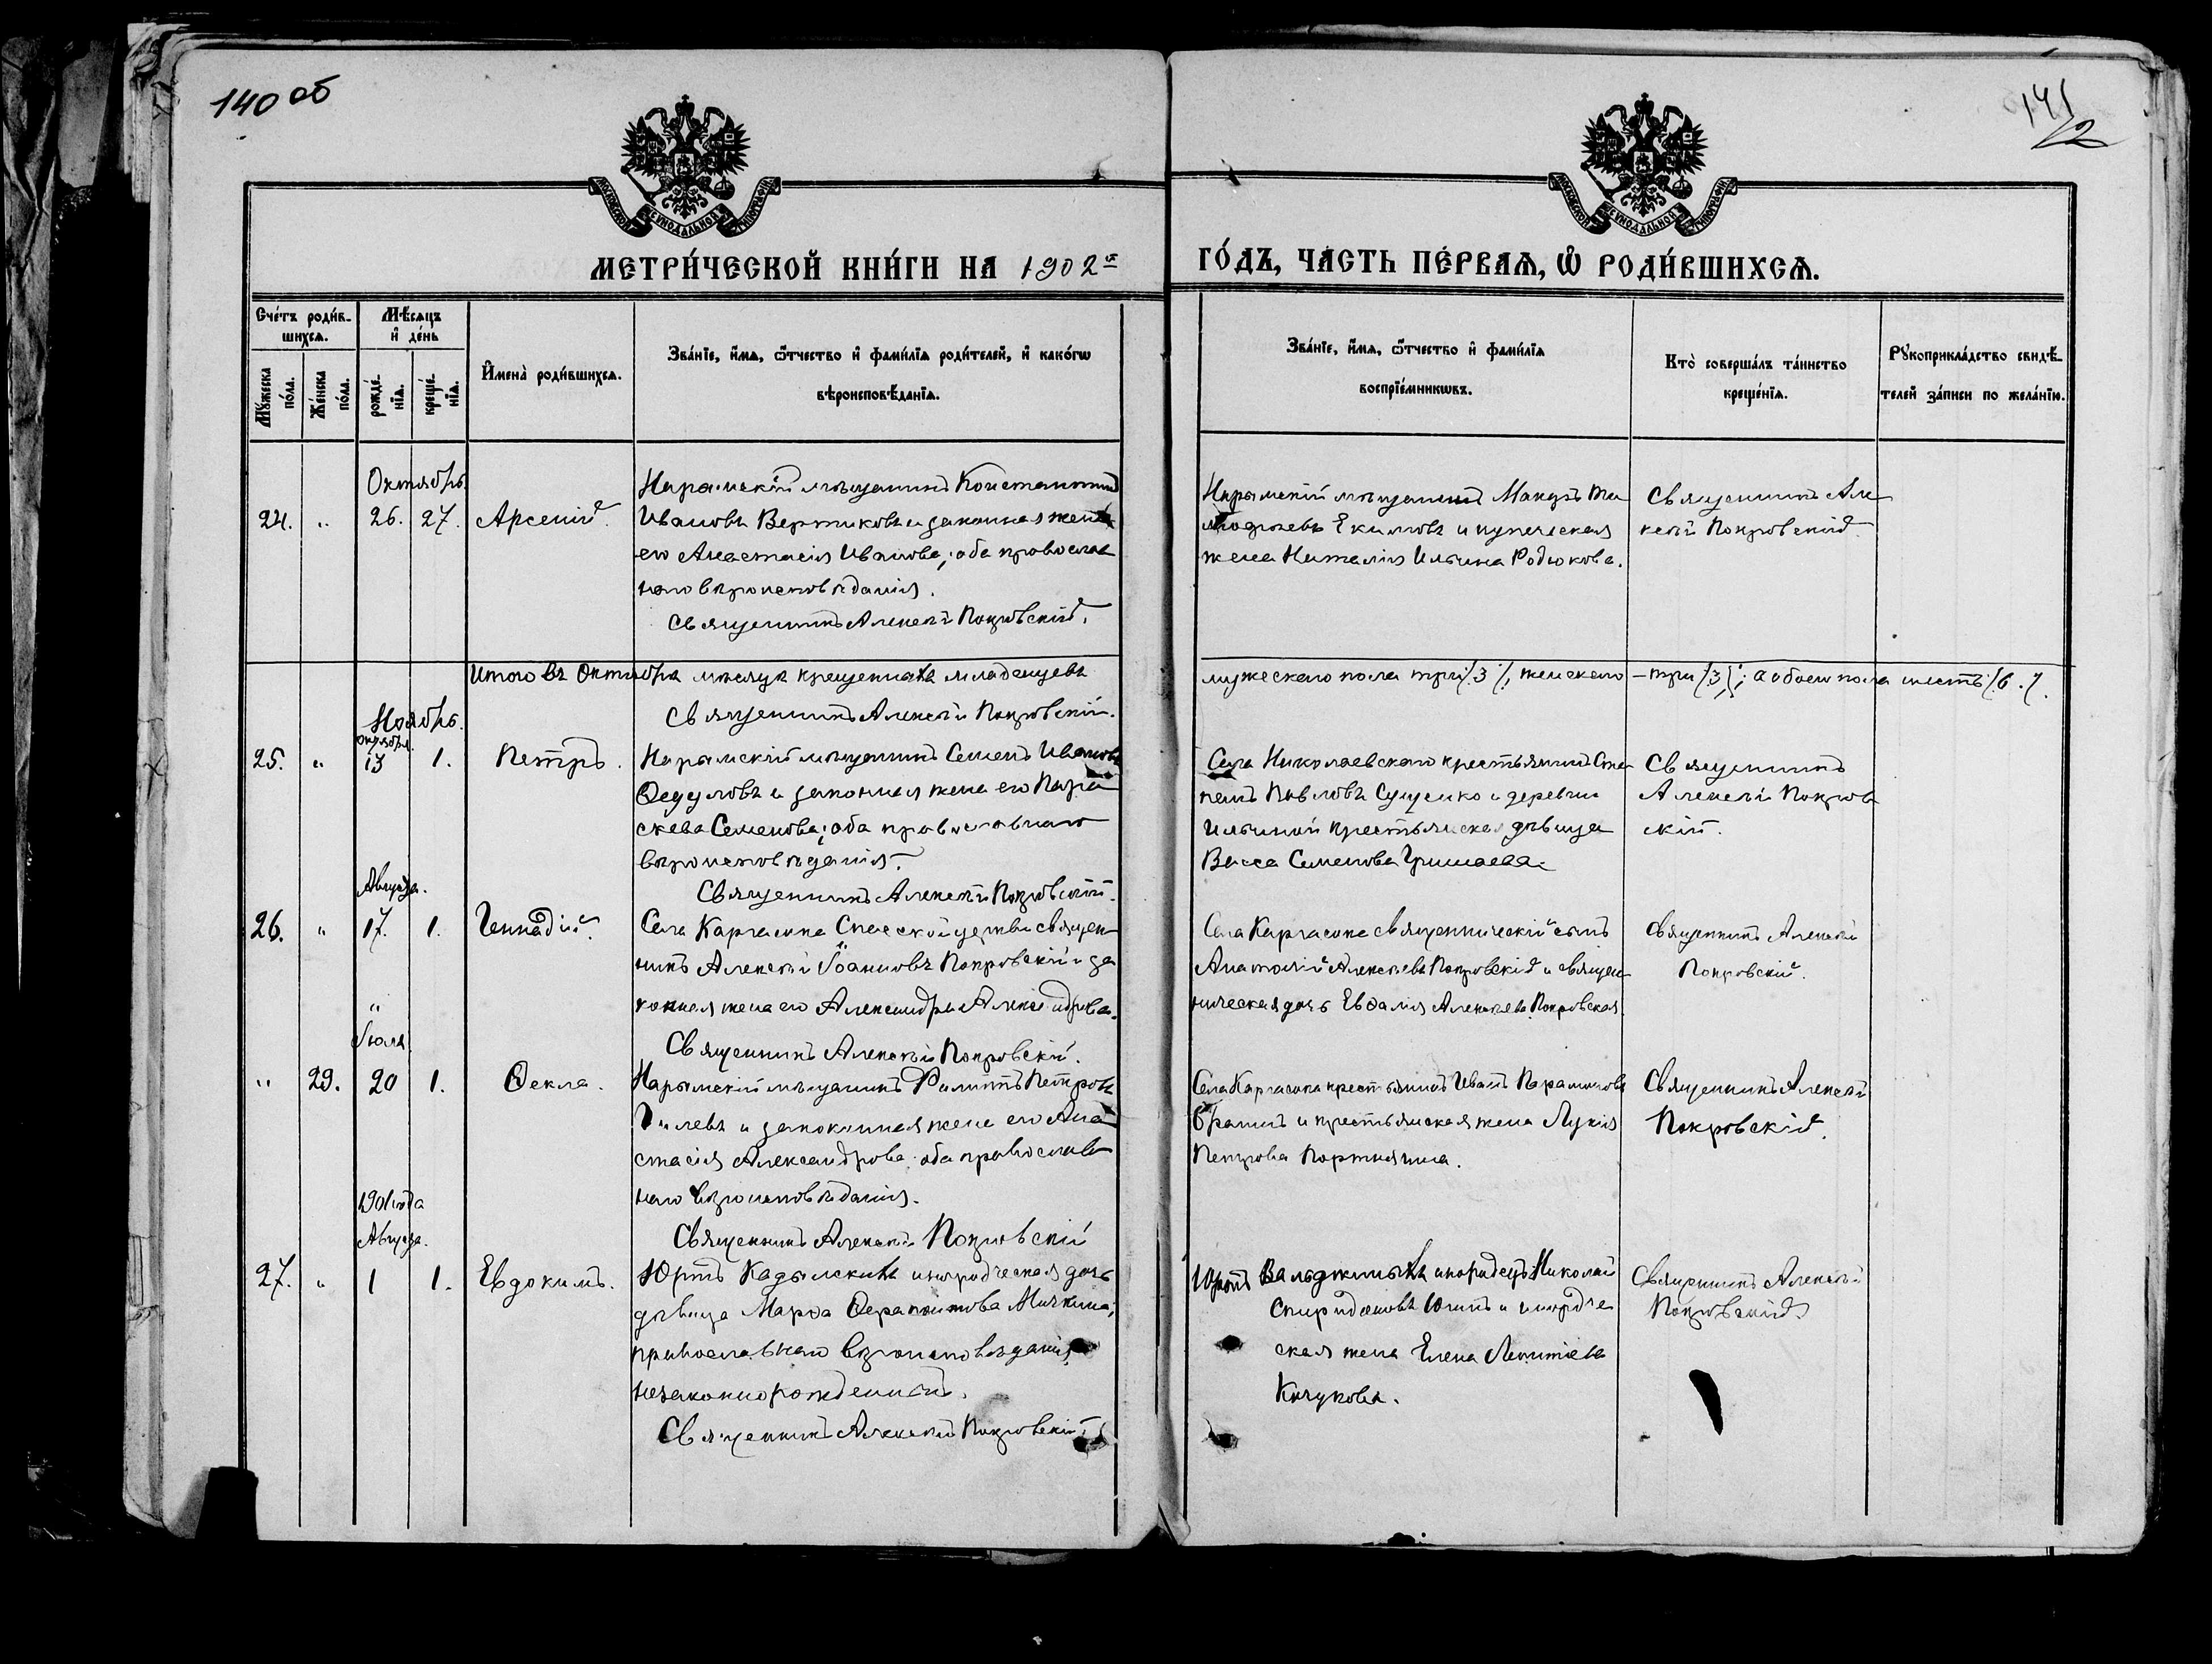 140 об
141
2
МОСКОВСКОЙ СУНОДАЛЬНОЙ ТИПОГРАФІИ
МОСКОВСКОЙ СУНОДАЛЬНОЙ ТИПОГРАФІИ
МЕТРИ́ЧЕСКОЙ КНИ́ГИ НА 1902й
ГО́ДЪ, ЧА́СТЬ ПЕ́РВАѦ, Ѡ҆ РОДИ́ВШИХСѦ.
Сче́тъ роди́в-
шихсѧ.
Мꙋ́жеска по́ла.
Же́нска по́ла.
Мѣ́сѧцъ
и҆ де́нь
рожде́-нїѧ.
креще́-нїѧ.
И҆мена̀ роди́вшихсѧ.
Зва́нїе, и҆́мѧ, ѻ҆́тчество и҆ фамѝлїѧ роди́телей, и҆ како́гѡ
вѣроисповѣ́данїѧ.
Зва́нїе, и҆́мѧ, ѻ҆́тчество и҆ фами́лїѧ
воспрїе́мникѡвъ.
Кто̀ соверша́лъ та́инство
креще́нїѧ.
Рꙋкоприкла́дство свидѣ́-
телей за́писи по жела́нїю.
Октябрь
24. " 26. 27. Арсеній.
Нарымскій мѣщанинъ Константинъ
Ивановъ Вертиковъ и законная жена
его Анастасія Иванова; оба православ
наго вѣроисповѣданія.
Священникъ Алексѣй Покровскій.
Нарымскій мѣщанинъ
Екимовъ и купеческая
жена Наталія Ильина Родюкова.
Священникъ Але
ксѣй Покровскій
Итого въ Октябрѣ мѣсяцѣ крещенныхъ младенцевъ
мужескаго пола три /.3./, женскаго – три /3/; а обоего пола шесть /.6./.
Священникъ Алексѣй Покровскій.
Ноябрь.
октября.
25. " 13 1. Петръ.
Нарымскій мѣщанинъ Семенъ Ивановъ
Ѳедуловъ и законная жена его Пара
скева Семенова; оба православнаго
вѣроисповѣданія.
Священникъ Алексѣй Покровскій.
Села Николаевскаго крестьянинъ Сте
панъ Павловъ Сущенко и деревни
Ильиной крестьянская дѣвица
Васса Семенова Гришаева.
Священникъ
Алексѣй Покров
скій.
Августа.
26. " 17. 1. Геннадій.
Села Каргасока Спасской церкви священ
никъ Алексѣй Іоанновъ Покровскій и за
конная жена его Александра Александрова.
Священникъ Алексѣй Покровскій.
Села Каргасока священническій сынъ
Анатолій Алексѣевъ Покровскій и священ
ническая дочь Евѳалія Алексѣева Покровская.
Священникъ Алексѣй
Покровскій.
"
Іюля
" 29. 20 1. Ѳекла.
Нарымскій мѣщанинъ Филиппъ Петровъ
и законная жена его Ана
стасія Александрова; оба православ
наго вѣроисповѣданія.
Священникъ Алексѣй Покровскій
Села Каргасока крестьянинъ Иванъ Парамоновъ
и крестьянская жена Лукія
Петрова Портнягина.
Священникъ Алексѣй
Покровскій.
1901 года
Августа.
27. " 1 1. Евдокимъ.
Юртъ Кадыльскихъ инородческая дочь
дѣвица Марѳа Ѳерапонтова Мичкина;
православнаго вѣроисповѣданія,
незаконнорожденный.
Священникъ Алексѣй Покровскій
Юртъ Вальджиныхъ инородецъ Николай
Спиридоновъ Югинъ и инородче
ская жена Елена Леонтіева
Качукова.
Священникъ Алексѣй
Покровскій